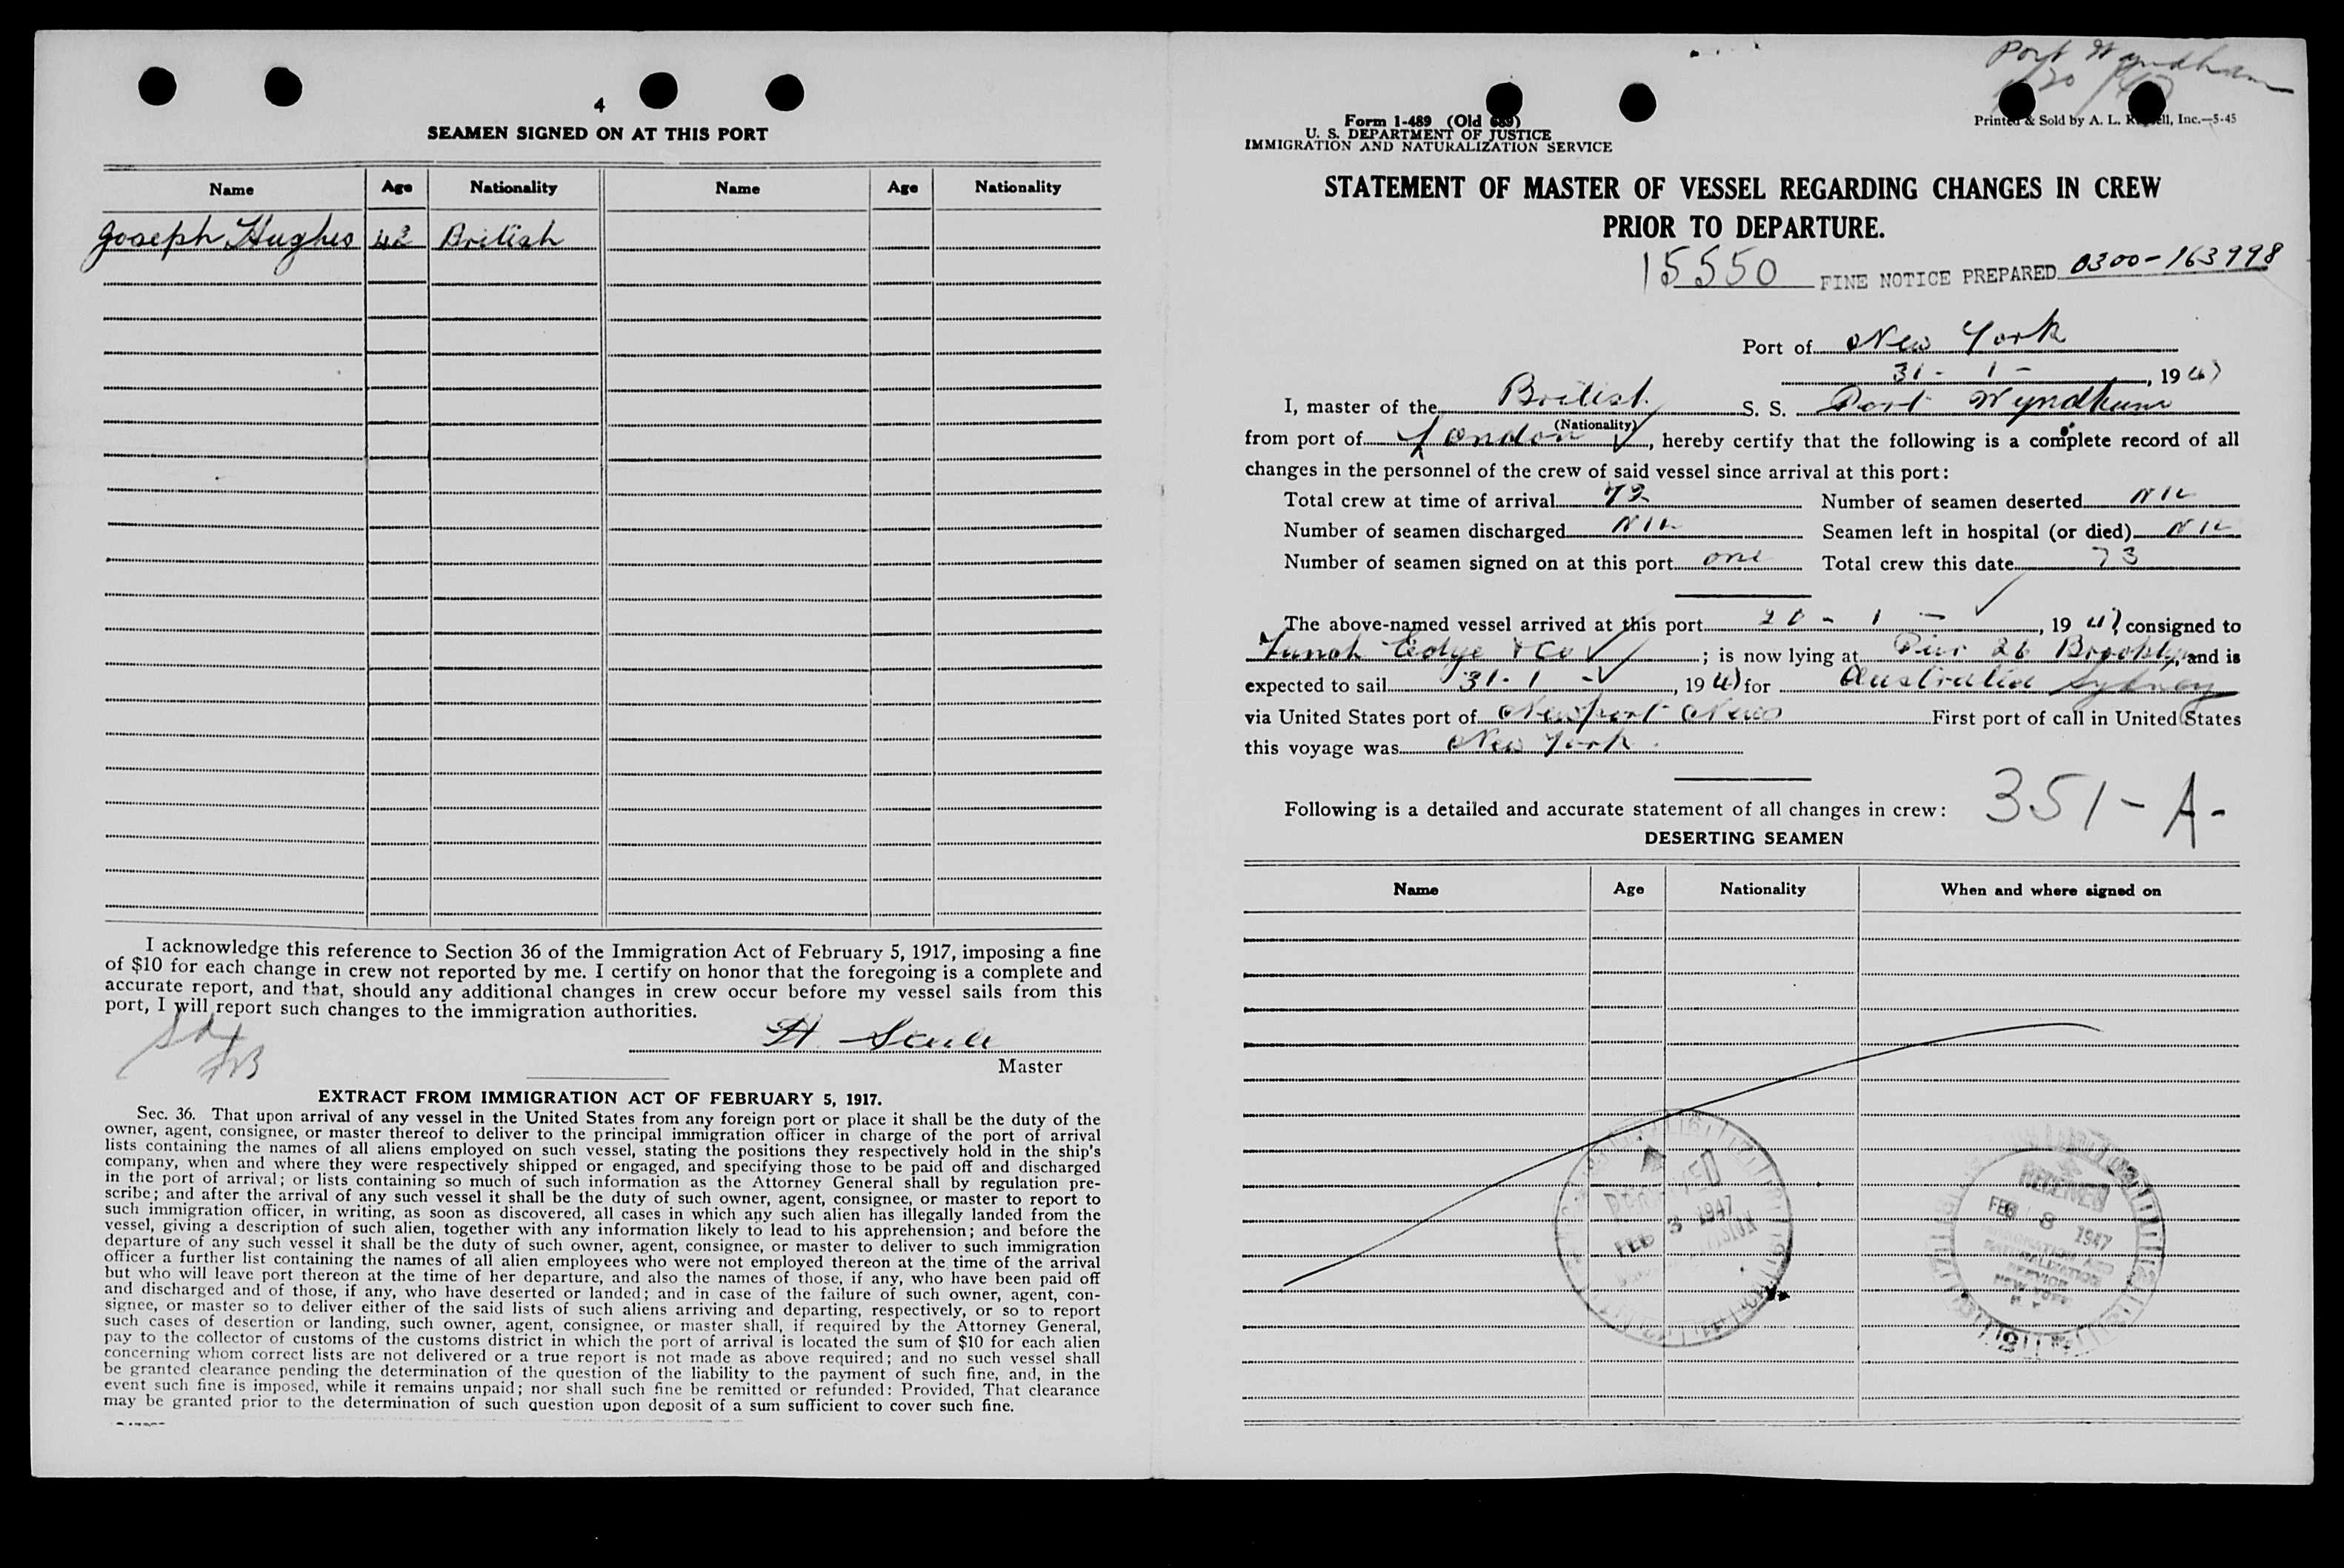 4
SEAMEN SIGNED ON AT THIS PORT
Name Age Nationality Name Age Nationality
Joseph Hughes 42 British
I acknowledge this reference to Section 36 of the Immigration Act of February 5, 1917, imposing a fine
of $10 for each change in crew not reported by me. I certify on honor that the foregoing is a complete and
accurate report, and that, should any additional changes in crew occur before my vessel sails from this
port, I will report such changes to the immigration authorities.
H. Steele
Master
EXTRACT FROM IMMIGRATION ACT OF FEBRUARY 5, 1917.
Sec. 36. That upon arrival of any vessel in the United States from any foreign port or place it shall be the duty of the
owner, agent, consignee, or master thereof to deliver to the principal immigration officer in charge of the port of arrival
lists containing the names of all aliens employed on such vessel, stating the positions they respectively hold in the ship's
company, when and where they were respectively shipped or engaged, and specifying those to be paid off and discharged
in the port of arrival; or lists containing so much of such information as the Attorney General shall by regulation pre-
scribe; and after the arrival of any such vessel it shall be the duty of such owner, agent, consignee, or master to report to
such immigration officer, in writing, as soon as discovered, all cases in which any such alien has illegally landed from the
vessel, giving a description of such alien, together with any information likely to lead to his apprehension; and before the
departure of any such vessel it shall be the duty of such owner, agent, consignee, or master to deliver to such immigration
officer a further list containing the names of all alien employees who were not employed thereon at the time of the arrival
but who will leave port thereon at the time of her departure, and also the names of those, if any, who have been paid off
and discharged and of those, if any, who have deserted or landed; and in case of the failure of such owner, agent, con-
signee, or master so to deliver either of the said lists of such aliens arriving and departing, respectively, or so to report
such cases of desertion or landing, such owner, agent, consignee, or master shall, if required by the Attorney General,
pay to the collector of customs of the customs district in which the port of arrival is located the sum of $10 for each alien
concerning whom correct lists are not delivered or a true report is not made as above required; and no such vessel shall
be granted clearance pending the determination of the question of the liability to the payment of such fine, and, in the
event such fine is imposed, while it remains unpaid; nor shall such fine be remitted or refunded: Provided, That clearance
may be granted prior to the determination of such question upon deposit of a sum sufficient to cover such fine.
Port Wyndham
1/20/47
Form 1-489 (Old 689)
Printed & Sold by A. L. Russell, Inc.—5-45
U. S. DEPARTMENT OF JUSTICE
IMMIGRATION AND NATURALIZATION SERVICE
STATEMENT OF MASTER OF VESSEL REGARDING CHANGES IN CREW
PRIOR TO DEPARTURE.
15550 FINE NOTICE PREPARED 0300-163998
Port of New York
31 - 1 - , 1947
I, master of the British S. S. Port Wyndham
(Nationality)
from port of London, hereby certify that the following is a complete record of all
changes in the personnel of the crew of said vessel since arrival at this port:
Total crew at time of arrival 72 Number of seamen deserted NIL
Number of seamen discharged NIL Seamen left in hospital (or died) NIL
Number of seamen signed on at this port one Total crew this date 73
The above-named vessel arrived at this port 20 - 1 - , 1947, consigned to
Funch Edye & Co; is now lying at Pier 26 Brooklyn, and is
expected to sail 31 - 1 - , 1947 for Australia Sydney
via United States port of Newport News First port of call in United States
this voyage was New York.
Following is a detailed and accurate statement of all changes in crew: 351-A-
DESERTING SEAMEN
Name Age Nationality When and where signed on
FEB 3 1947
RECEIVED
FEB 8 1947
IMMIGRATION AND
NATURALIZATION
SERVICE
NEW YORK
N Y